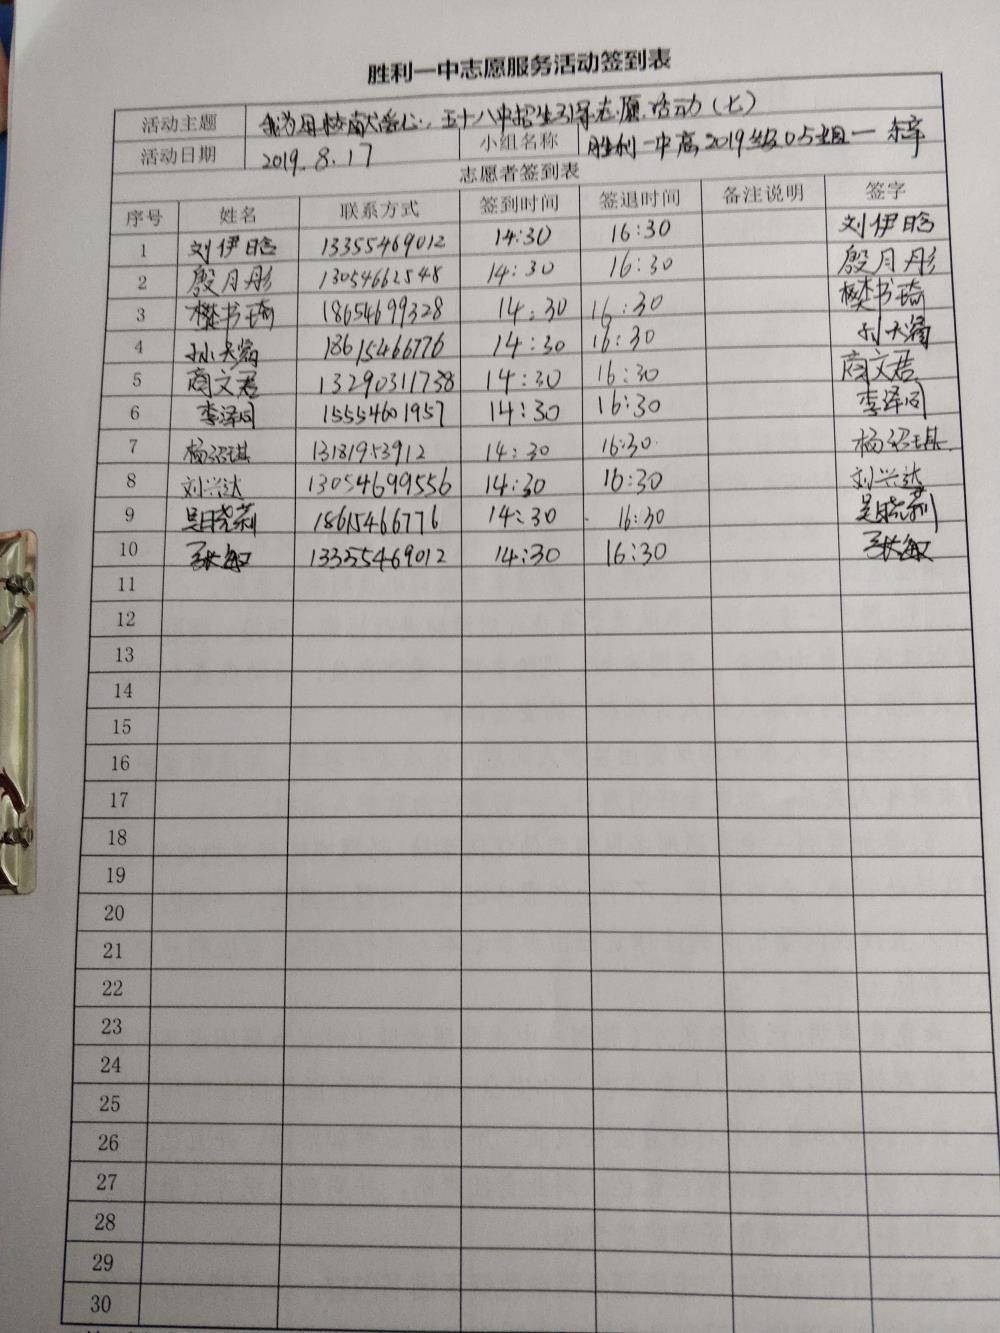 胜利一中志愿服务活动签到表
活动主题 我为母校献爱心，五十八中招生引导志愿活动（七）
活动日期 2019.8.17 小组名称 胜利一中高2019级05班组一
志愿者签到表
序号 姓名 联系方式 签到时间 签退时间 备注说明 签字
1 刘伊晗 13355469012 14:30 16:30 刘伊晗
2 殷月彤 13054662548 14:30 16:30 殷月彤
3 樊书琦 18654699328 14:30 16:30 樊书琦
4 孙天 18615466776 14:30 16:30 孙天
5 商文君 13290311738 14:30 16:30 商文君
6 李泽同 15554601957 14:30 16:30 李泽同
7 杨绍琪 13181953912 14:30 16:30 杨绍琪
8 刘兴达 13054699556 14:30 16:30 刘兴达
9 吴晓莉 18615466776 14:30 16:30 吴晓莉
10 张敏 13355469012 14:30 16:30 张敏
11
12
13
14
15
16
17
18
19
20
21
22
23
24
25
26
27
28
29
30